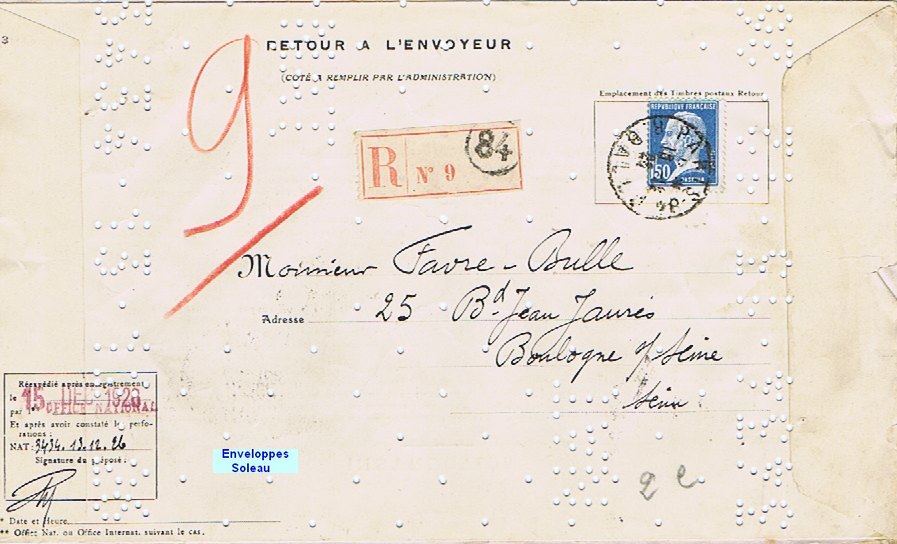 3
RETOUR A L'ENVOYEUR
(COTÉ A REMPLIR PAR L'ADMINISTRATION)
9
Emplacement des Timbres postaux Retour
REPUBLIQUE FRANÇAISE
1F50
PASTEUR
R N° 9
84
Monsieur Favre-Bulle
Adresse 25 Bd Jean Jaurès
Boulogne s/ Seine
Seine
Réexpédié après enregistrement
le 15 DEC 1926
par l'** OFFICE NATIONAL
Et après avoir constaté les perfo-
rations:
NAT: 3434.13.12.26
Signature du préposé:
* Date et Heure
** Office Nat. ou Office Internat. suivant le cas.
Enveloppes
Soleau
2 e